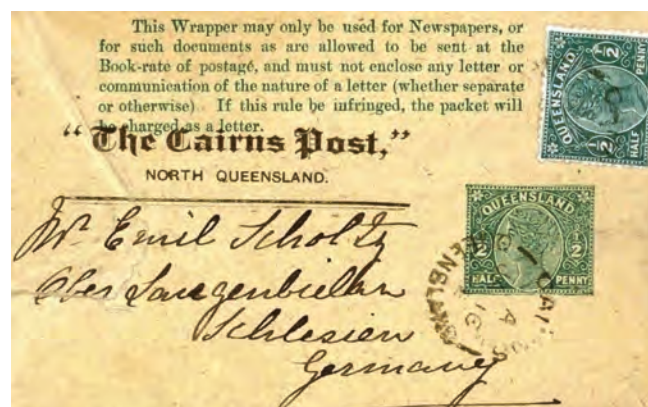 This Wrapper may only be used for Newspapers, or
for such documents as are allowed to be sent at the
Book-rate of postage, and must not enclose any letter or
communication of the nature of a letter (whether separate
or otherwise). If this rule be infringed, the packet will
be charged as a letter.
"The Cairns Post,"
NORTH QUEENSLAND.
Mr Emil Scholtz
Ober Langenbielau
Schlesien
Germany
QUEENSLAND
1/2 1/2
HALF PENNY
QUEENSLAND
1/2 1/2
HALF PENNY